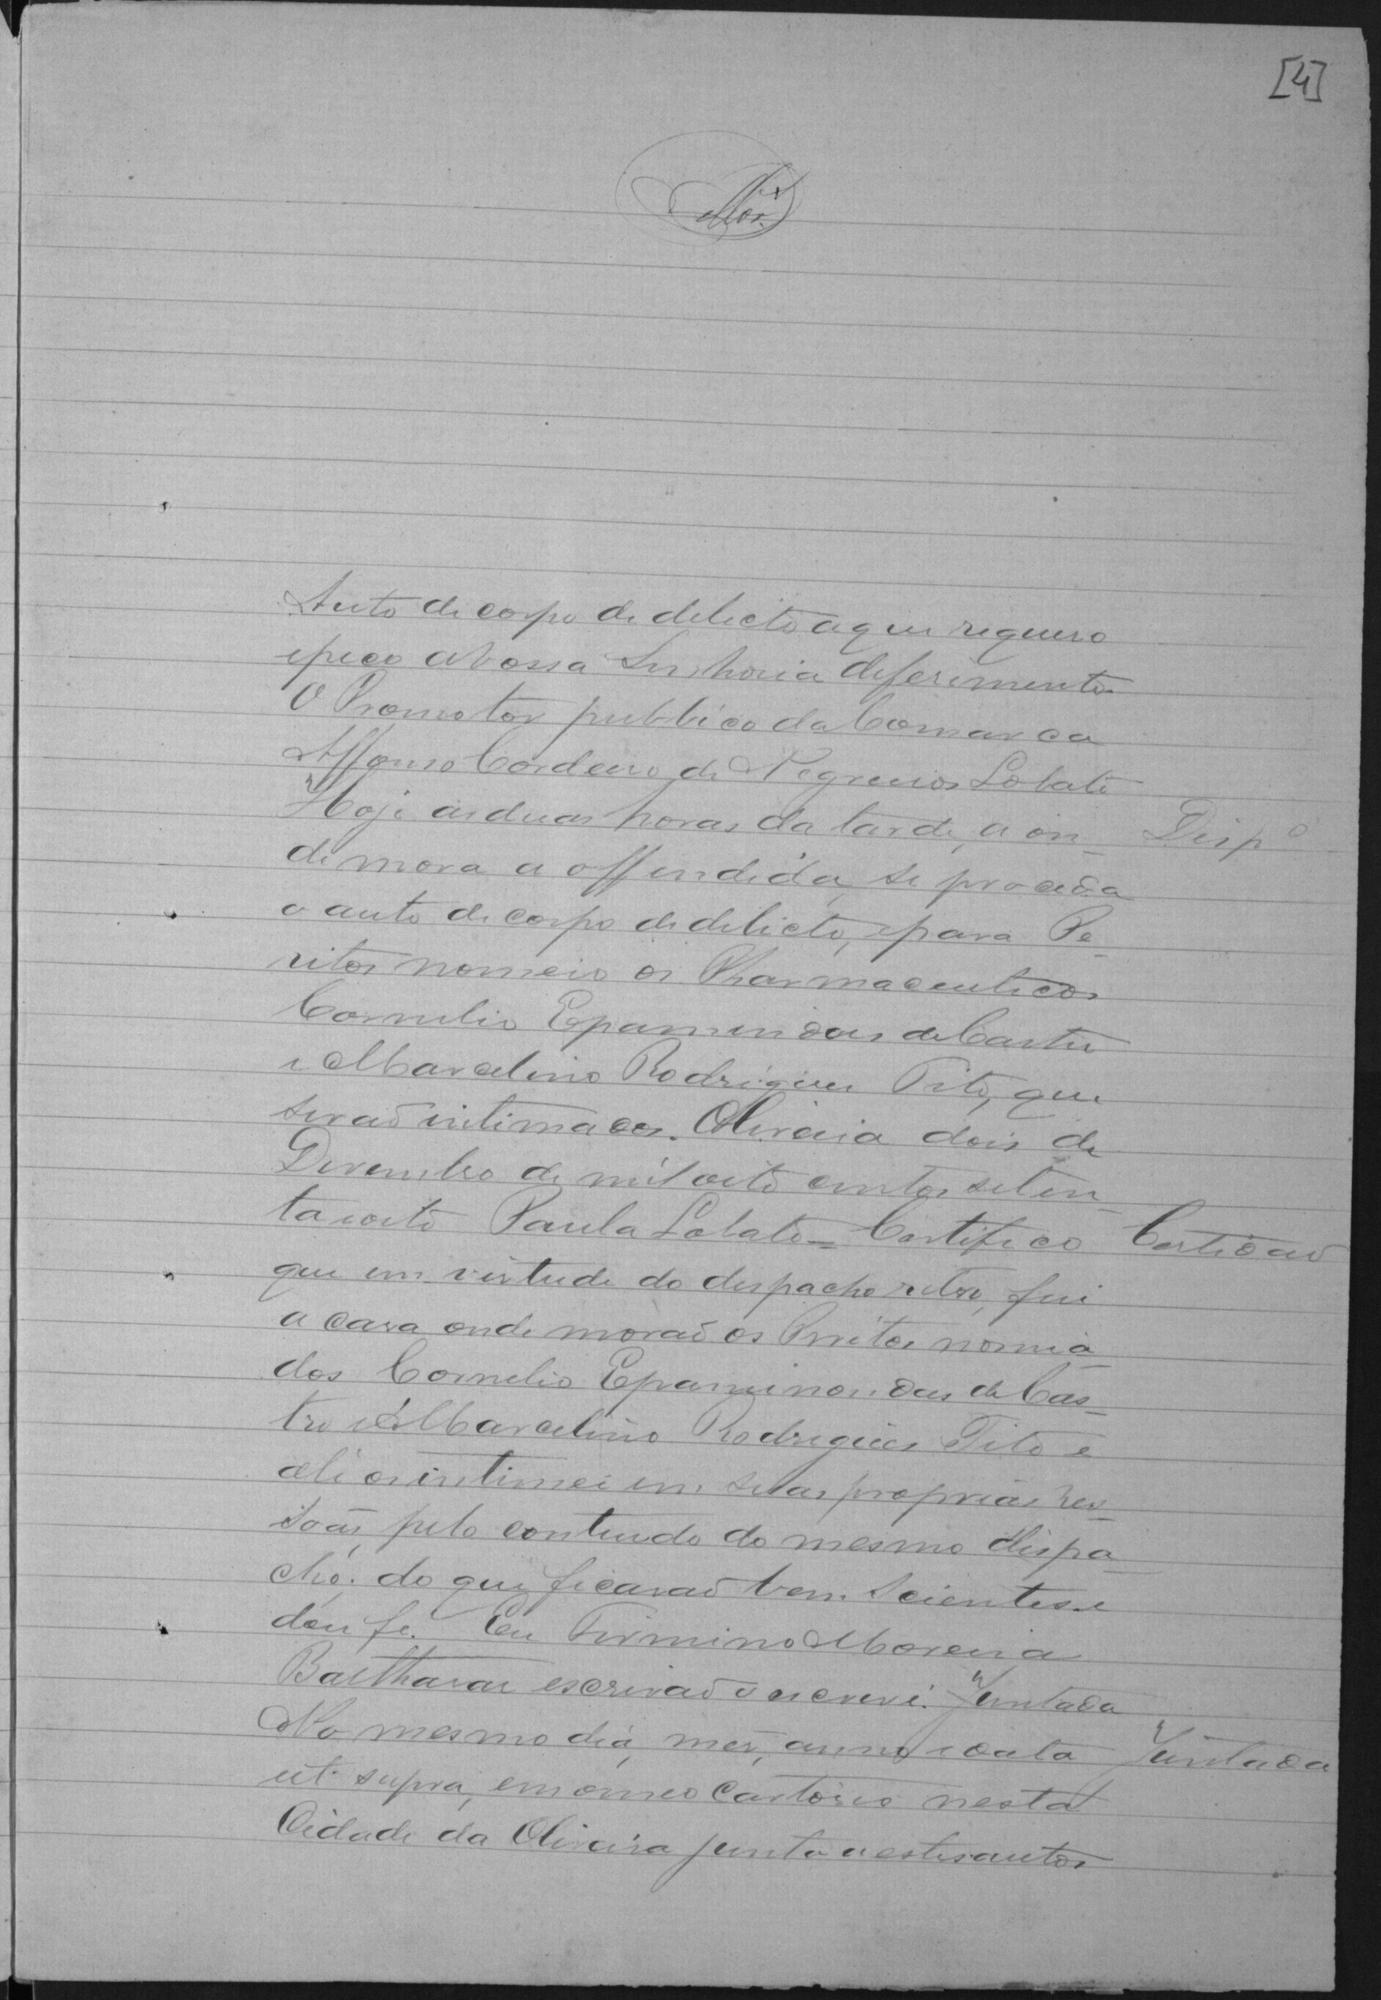 [4]
Auto de corpo de delicto a que requero
e peço a Vossa Senhoria deferimento
O Promotor publico da Comarca
Affonso Cordeiro de Negreiros Lobato
Hoje as duas horas da tarde, a on- Desp.o
de mora a offendida, se proceda
o auto de corpo de delicto, e para Pe-
ritos nomeio os Pharmaceuticos
Cornelio Epaminondas de Castro
e Marcelino Rodrigues Tito, que
serão intimados. Oliveira dois de
Dezembro de mil oito centos seten-
ta e oito Paula Lobato = Certifico Certidão
que em virtude do despacho retro, fui
a casa onde morão os Peritos nomia-
dos Cornelio Epaminondas de Cas-
tro e Marcelino Rodrigues Tito e
ali os intimei em suas proprias pes-
soas, pelo conteudo do mesmo despa-
cho. do que ficarão bem scientes e
dou fé. Eu Firmino Moreira
Balthasar escrivão o escrevi. Juntada
No mesmo dia, mez, anno e data Juntada
ut supra, em o meo Cartorio nesta
Cidade da Oliveira junto a estes autos